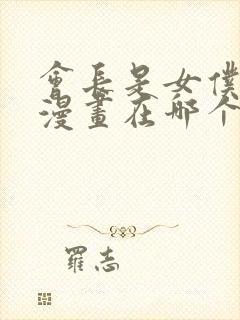 會长是女僕
漫畫在哪个
羅志